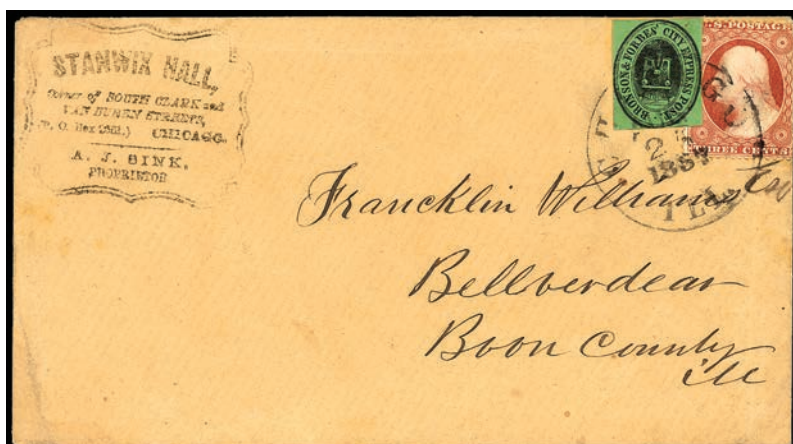 STANWIX HALL,
Corner of SOUTH CLARK and
VAN BUREN STREETS,
(P. O. Box 2861.) CHICAGO.
A. J. SINK,
PROPRIETOR
BRONSON & FORBES' CITY EXPRESS POST.
U.S. POSTAGE
THREE CENTS
ILL
Francklin Williams
Bellverdear
Boon County
Ill